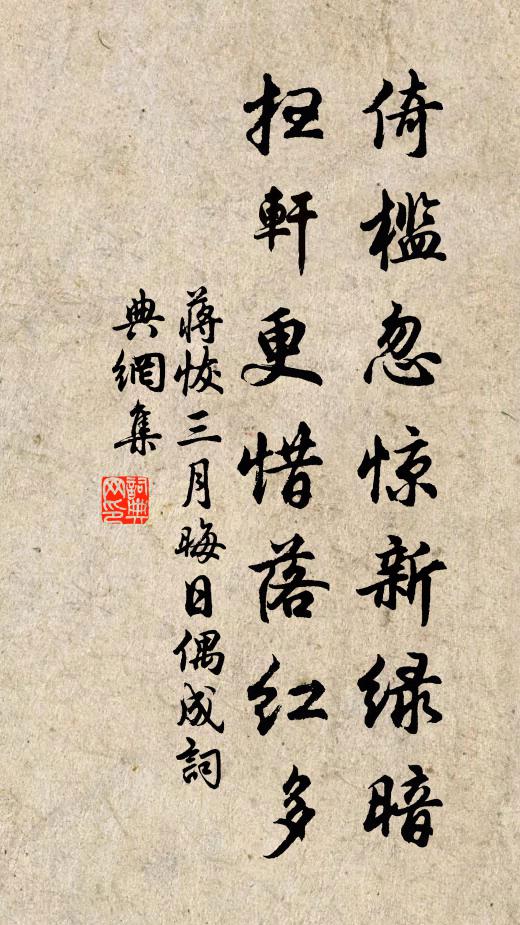 倚槛忽惊新绿暗
扫軒更惜落红多
蔣恔三月晦日偶成詞
典網集
詞典
网印